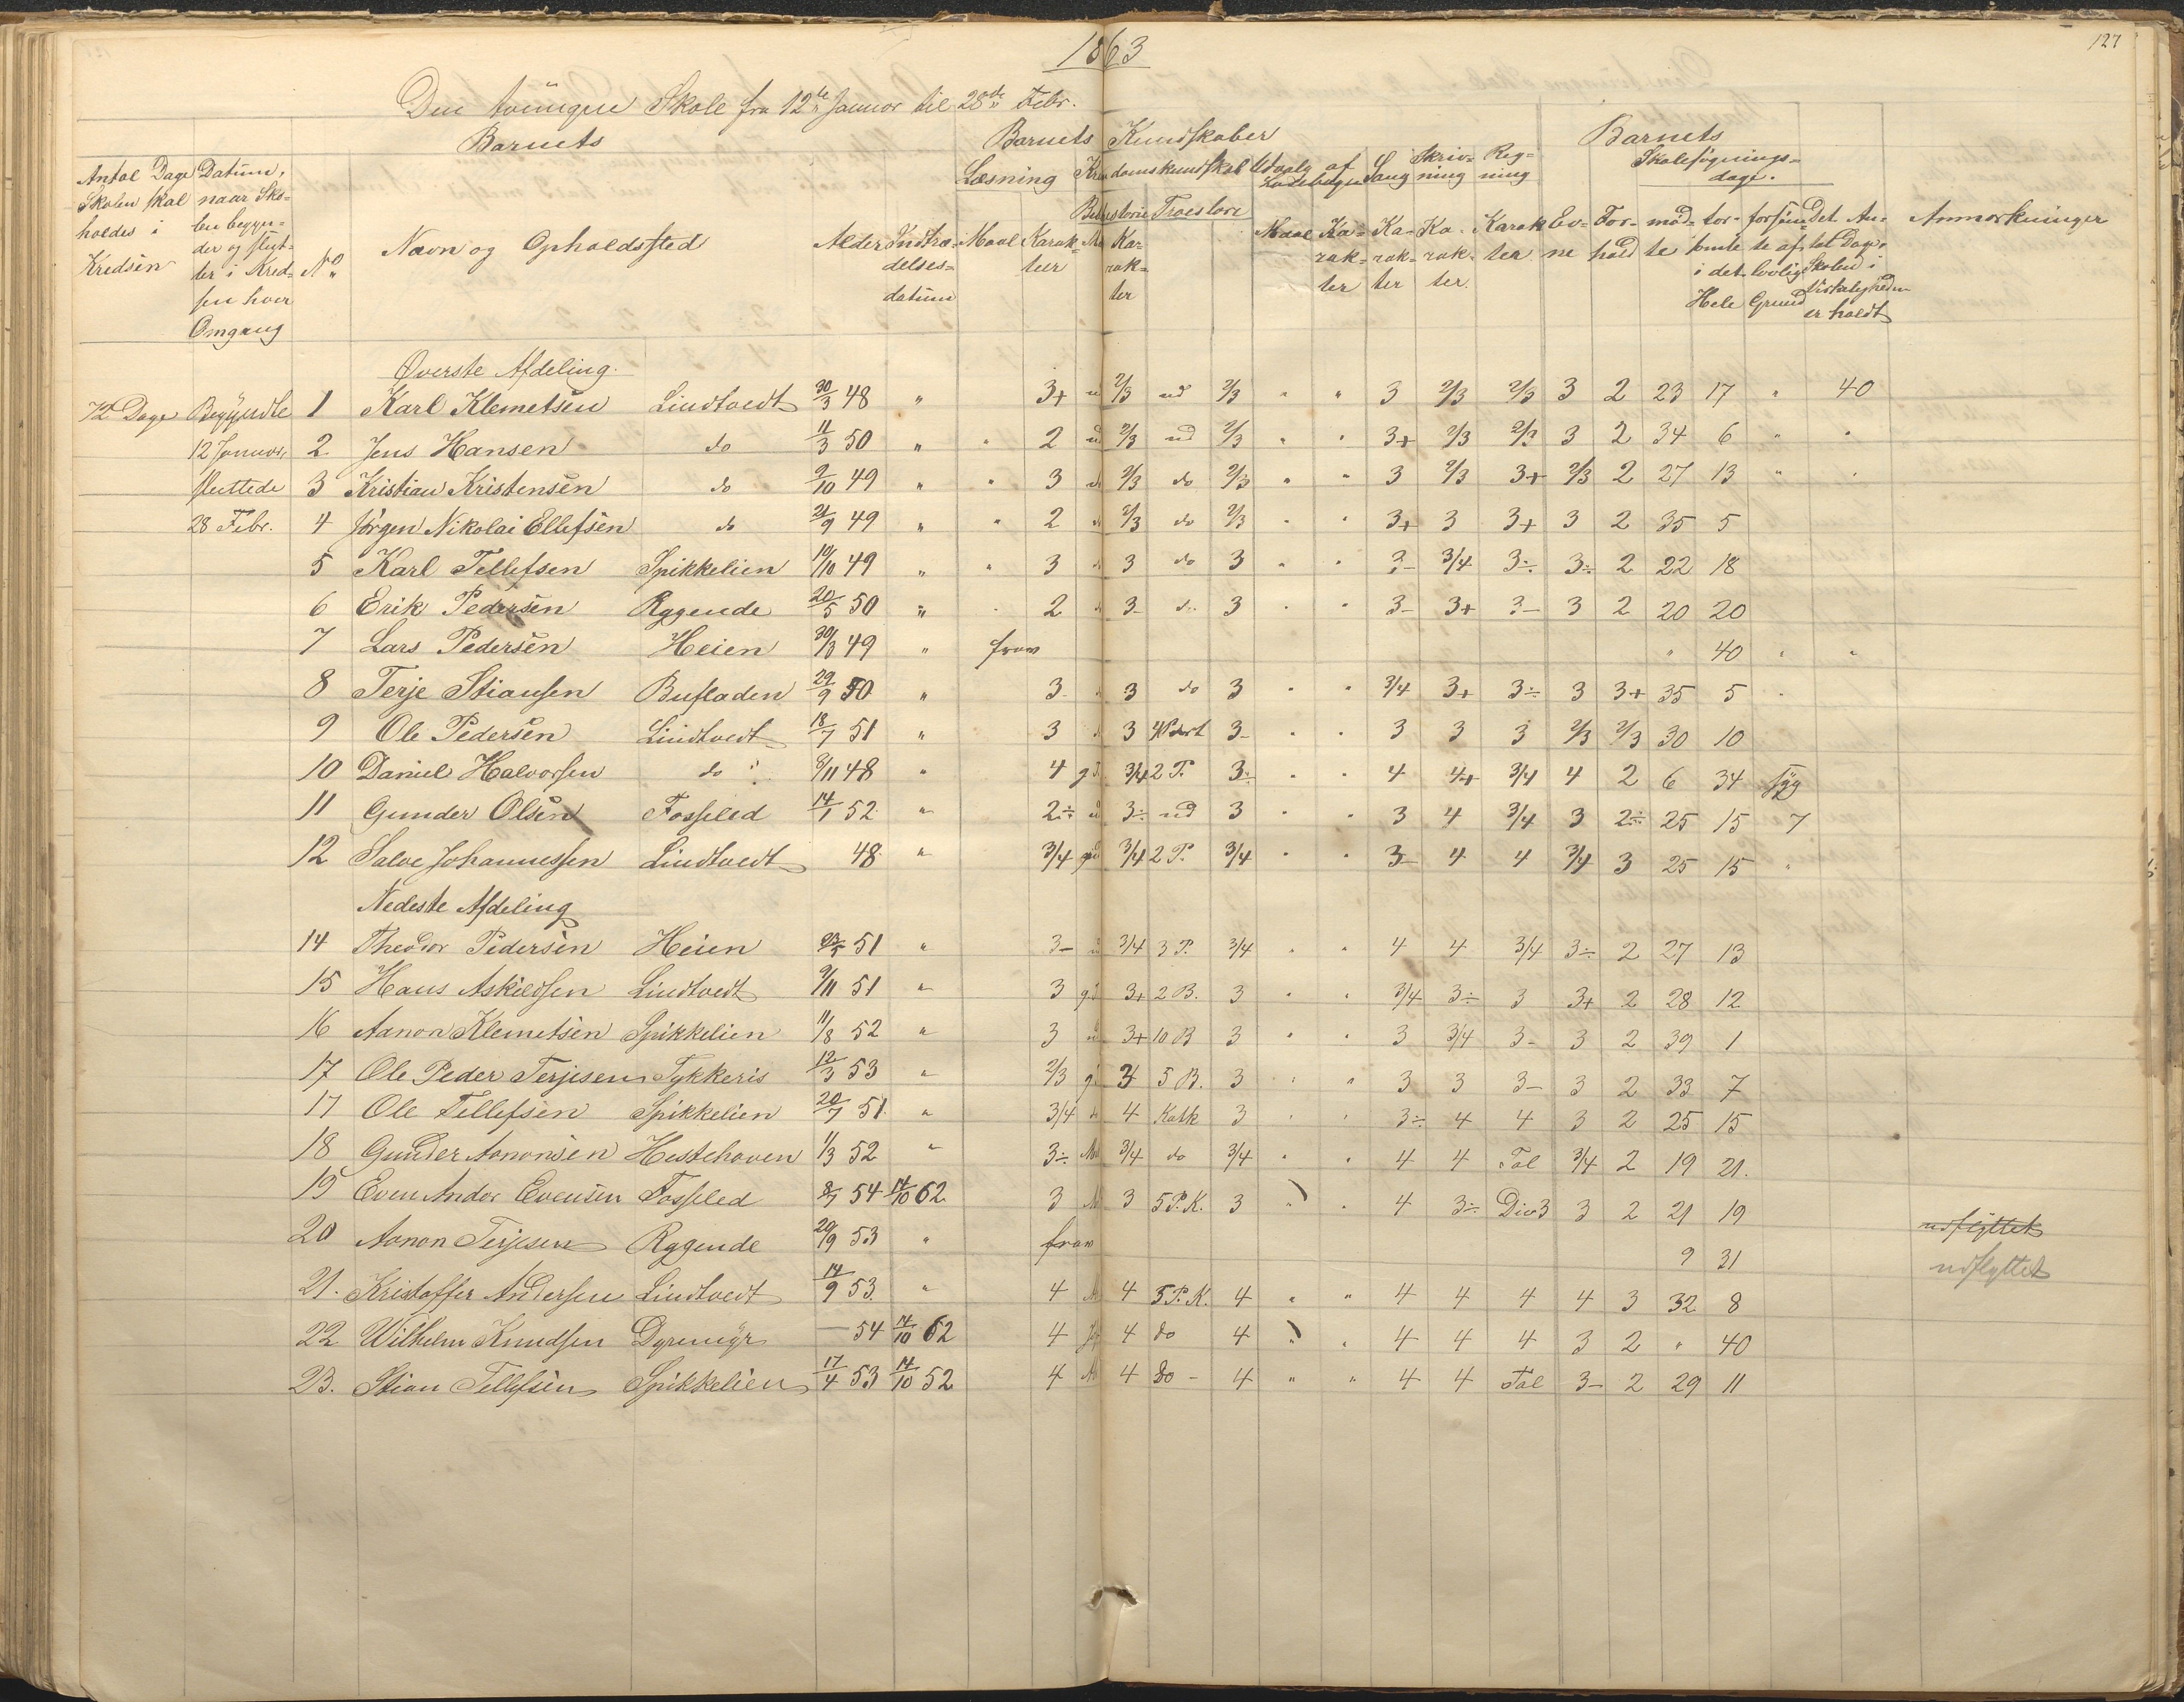 1863
127
Den tvungne Skole fra 12te Januar til 28de Febr.
Barnets
Barnets Kundskaber
Barnets
Antal Dage Skolen skal holdes i Kredsen
Datum, naar Skolen begynder og slutter i Kredsen hver Omgang
No
Navn og Opholdssted
Alder
Indtrædelsesdatum
Læsning
Maal Karakter
Kristendomskundskab
Troeslære
Karakter
Udvalg af Læsebogen
Maal Karakter
Sang Karakter
Skrivning Karakter
Regning Karakter
Evne
Forhold
Skolesøgningsdage.
mødte
forsømte i det Hele
forsømte af lovlig Grund
Det Antal Dage, Skolen i Virkeligheden er holdt
Anmærkninger
Øverste Afdeling.
72 Dage Begyndte 1 Karl Klemetsen Lindtvedt 30/3 48 " 3+ 2/3 ud 2/3 " " 3 2/3 2/3 3 2 23 17 " 40
12 Januar, 2 Jens Hansen do 11/3 50 " " 2 2/3 ud 2/3 " " 3+ 2/3 2/3 3 2 34 6 " "
sluttede 3 Kristian Kristensen do 2/10 49 " " 3 2/3 do 2/3 " " 3 2/3 3+ 2/3 2 27 13 " "
28 Febr. 4 Jørgen Nikolai Ellefsen do 21/9 49 " " 2 2/3 do 2/3 " " 3+ 3 3+ 3 2 35 5
5 Karl Tellefsen Spikkelien 19/10 49 " " 3 3 do 3 " " 3- 3/4 3÷ 3÷ 2 22 18
6 Erik Pedersen Ryggende 20/5 50 " " 2 3- do 3 " " 3- 3+ 3- 3 2 20 20
7 Lars Pedersen Heien 30/3 49 " frav " 40 " "
8 Terje Stiansen Busladen 29/9 50 " 3- 3 do 3 " " 3/4 3+ 3÷ 3 3+ 35 5 "
9 Ole Pedersen Lindtvedt 18/7 51 " 3 3 4 Part 3- " " 3 3 3 2/3 2/3 30 10
10 Daniel Halvorsen do 8/11 48 " 4 3/4 2 P. 3÷ " " 4 4+ 3/4 4 2 6 34 syg
11 Gunder Olsen Fosseled 14/1 52 " 2÷ 3÷ ud 3 " " 3 4 3/4 3 2÷ 25 15 7
12 Salve Johannessen Lindtvedt 48 " 3/4 3/4 2 P. 3/4 " " 3- 4 4 3/4 3 25 15 "
Nedeste Afdeling
14 Theodor Pedersen Heien 51 " 3- 3/4 3 P. 3/4 " " 4 4 3/4 3÷ 2 27 13
15 Hans Askildsen Lindtvedt 9/11 51 " 3 3+ 2 B. 3 " " 3/4 3÷ 3 3+ 2 28 12
16 Aanon Klemetsen Spikkelien 11/8 52 " 3 3+ 10 B 3 " " 3 3/4 3- 3 2 39 1
17 Ole Peder Terjesen Tykkeris 12/3 53 " 2/3 3 5 B. 3 " " 3 3 3- 3 2 33 7
17 Ole Tellefsen Spikkelien 20/7 51 " 3/4 4 Katk 3 " " 3÷ 4 4 3 2 25 15
18 Gunder Aanonsen Hestehaven 1/3 52 " 3÷ 3/4 do 3/4 " " 4 4 Tal 3/4 2 19 21.
19 Even Andor Evensen Fosseled 8/7 54 14/10 62 3 3 5 P. K. 3 " 4 3÷ Div 3 3 2 21 19
udflyttet
20 Aanon Terjesen Ryggende 29/9 53 " frav 9 31 udflyttet
21. Kristoffer Andersen Lindtvedt 14/9 53 " 4 4 5 P. K. 4 " " 4 4 4 4 3 32 8
22 Wilhelm Knudsen Dyremyr — 54 14/10 62 4 4 do 4 " " 4 4 4 3 2 " 40
23. Stian Tellefsen Spikkelien 17/4 53 14/10 52 4 4 do - 4 " " 4 4 Tal 3- 2 29 11